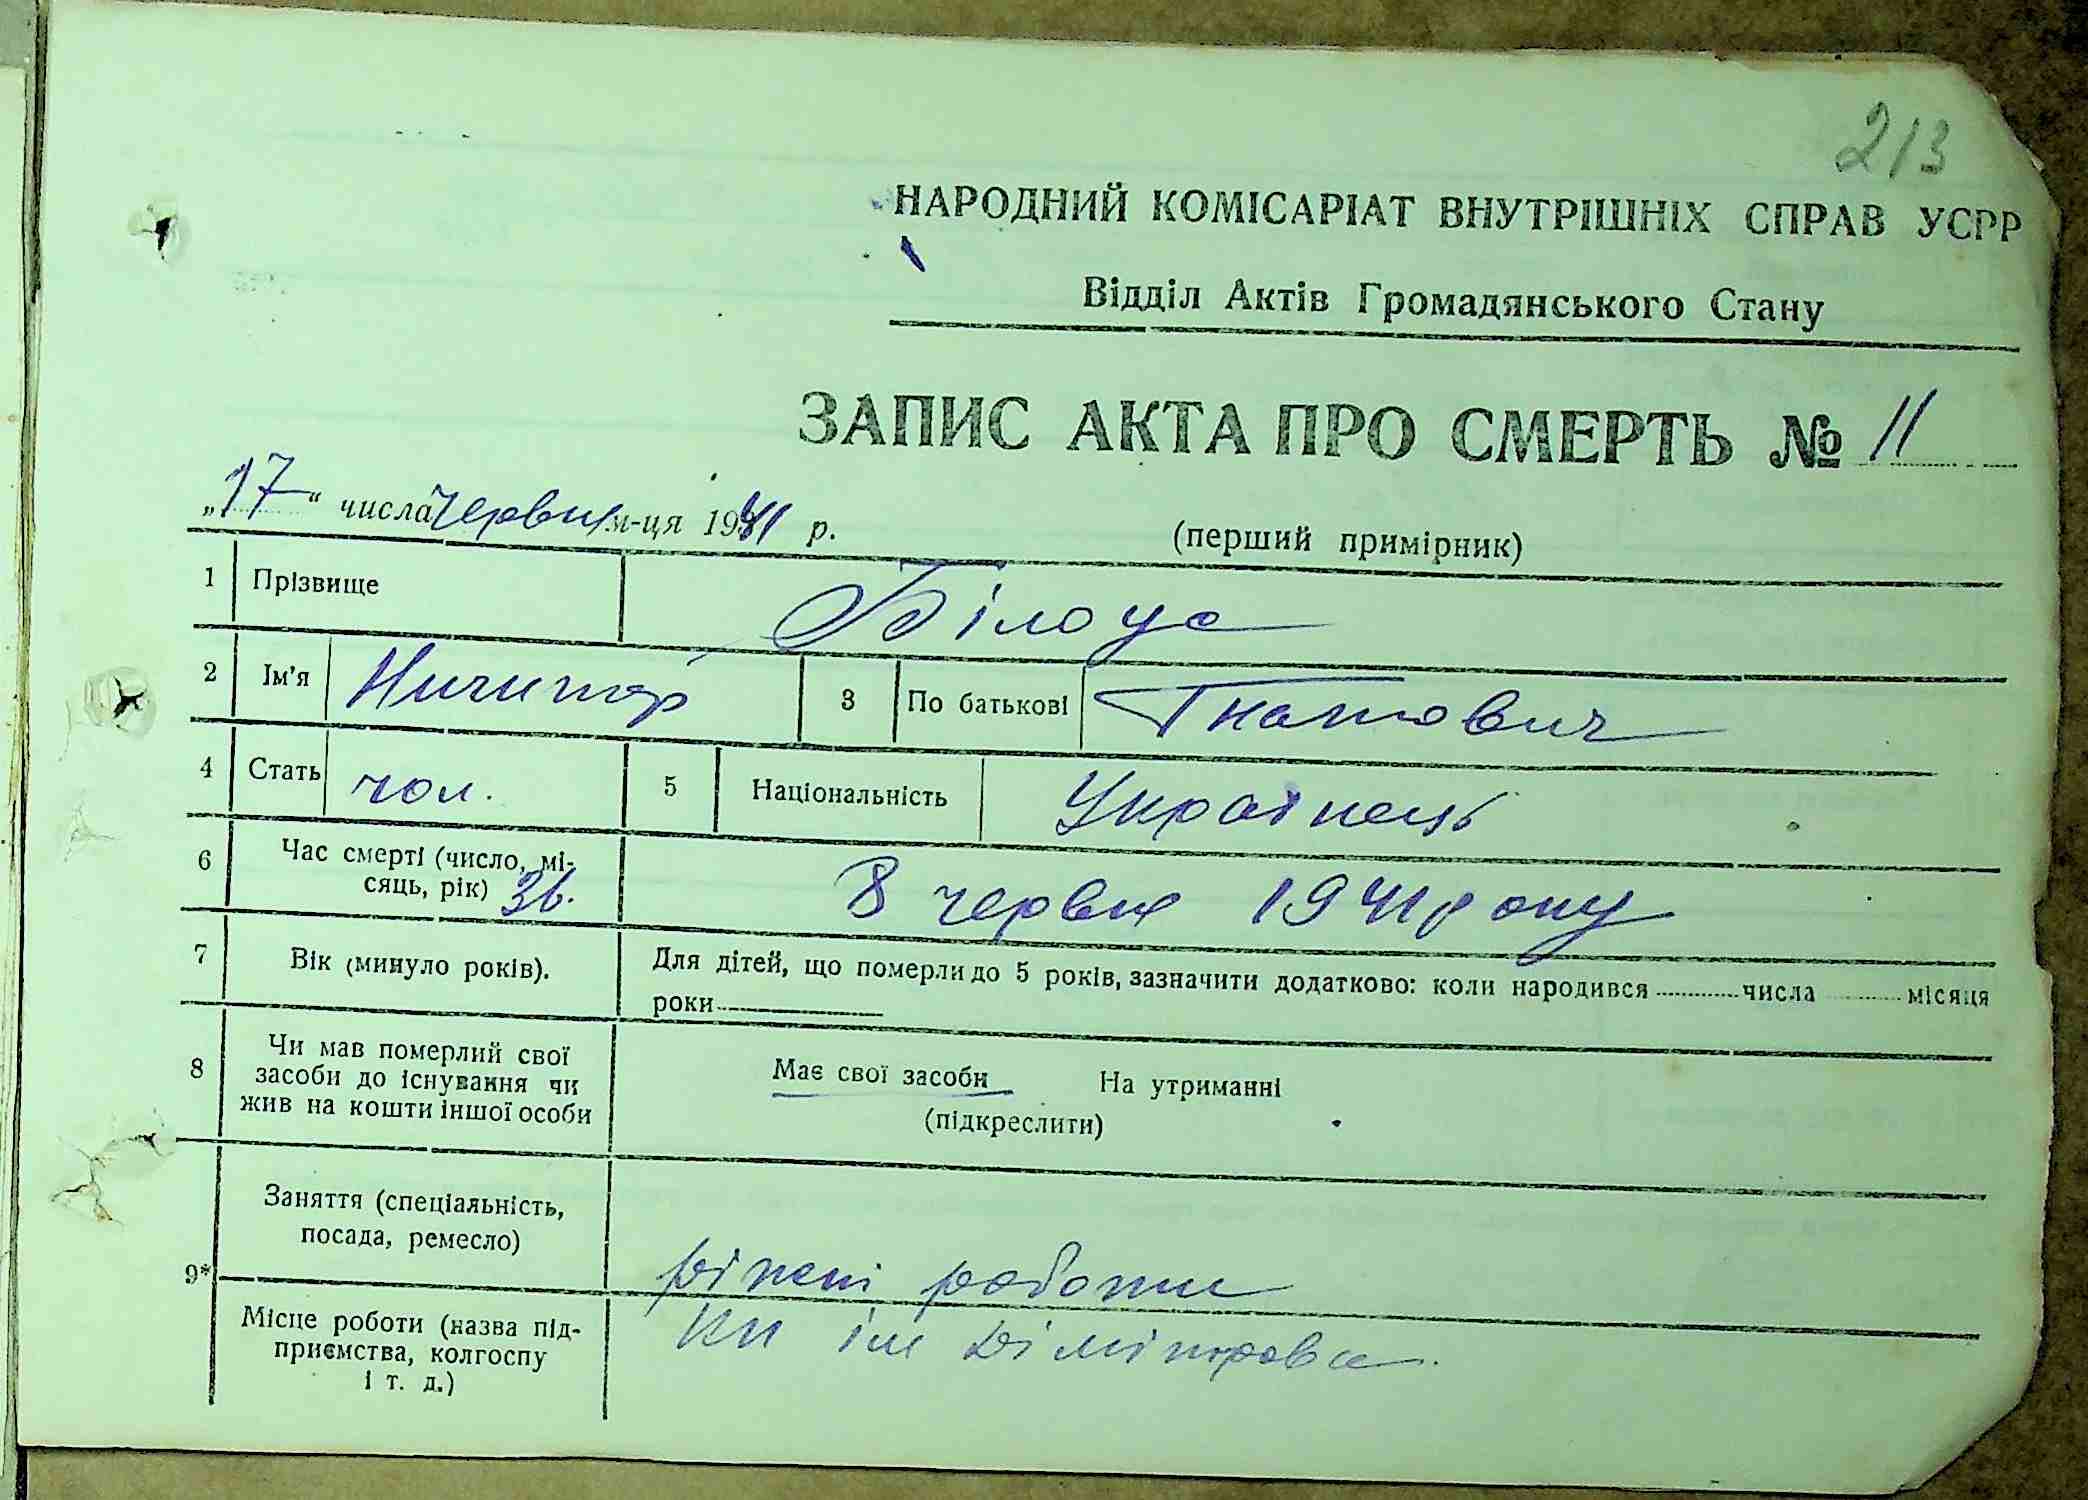 213
НАРОДНИЙ КОМІСАРІАТ ВНУТРІШНІХ СПРАВ УСРР
Відділ Актів Громадянського Стану
ЗАПИС АКТА ПРО СМЕРТЬ № 11
„17“ числа червня м-ця 1941 р.
(перший примірник)
1 Прізвище Білоус
2 Ім'я Ничипор 3 По батькові Гнатович
4 Стать чол. 5 Національність Українець
6 Час смерті (число, мі-
сяць, рік) 36. 8 червня 1941 року
7 Вік (минуло років). Для дітей, що померли до 5 років, зазначити додатково: коли народився числа місяця
роки
8 Чи мав померлий свої
засоби до існування чи
жив на кошти іншої особи
Має свої засоби На утриманні
(підкреслити)
9* Заняття (спеціальність,
посада, ремесло)
різні роботи
Місце роботи (назва під-
приємства, колгоспу
і т. д.)
ім Дімітрова.